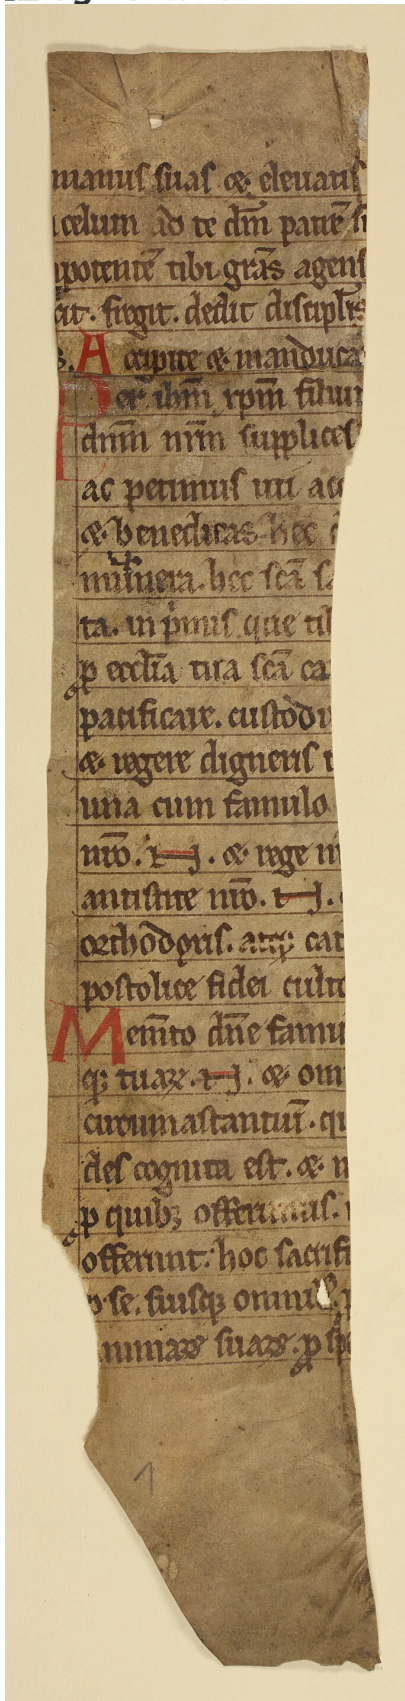 manus suas & eleuatis
celum ad te dm̄ patrē
potentē tibi grās agens
fregit. dedit discipl̄is
Accipite & manduca
er ihm̄ xp̄m filium
dn̄m nr̄m supplices
ac petimus uti acc
& benedicas hec
munera. hec scā sa
ta. in p̄mis que tib
ꝓ eccl̄ia tua scā ca
pacificare. custodi
& regere digneris
una cum famulo
nr̄o. N. & rege nr̄
antistite nr̄o. N.
orthodoxis. atq; cat
postolice fidei culto
Mem̄to dn̄e famu
q; tuaꝝ. N. & om
circumastantiū. qu
des cognita est. & n
ꝓ quib; offerimus.
offerunt. hoc sacrifi
se. suisq; omnib;
animaꝝ suaꝝ. ꝓ spe
1